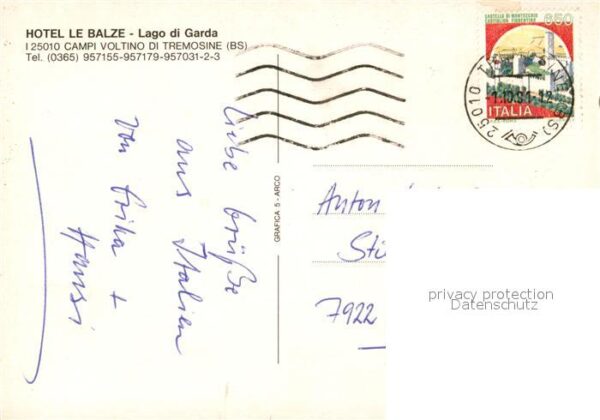 HOTEL LE BALZE - Lago di Garda
I 25010 CAMPI VOLTINO DI TREMOSINE (BS)
Tel. (0365) 957155-957179-957031-2-3
Liebe Grüße
aus Italien
von Erika +
Hansi
GRAFICA 5 - ARCO
CASTELLO DI MONTECCHIO
CASTIGLION FIORENTINO
650
ITALIA
25010
(BS)
Anton
Sti
7922
privacy protection
Datenschutz